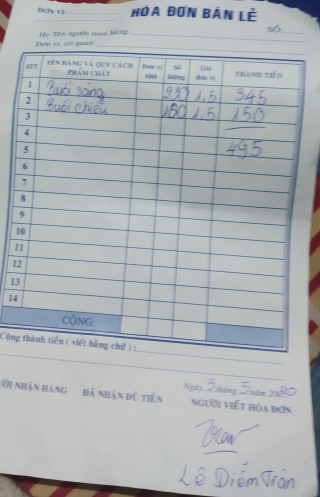 ĐƠN VỊ:
HÓA ĐƠN BÁN LẺ
Họ Tên người mua hàng:
SỐ:
Đơn vị, cơ quan:
STT TÊN HÀNG VÀ QUY CÁCH PHẨM CHẤT Đơn vị tính Số lượng Giá đơn vị THÀNH TIỀN
1 Buổi sáng 1,5 345
2 Buổi chiều 1,5 150
3
4 495
5
6
7
8
9
10
11
12
13
14
CỘNG:
Cộng thành tiền ( viết bằng chữ ) :
Ngày 5 tháng 5 năm 2020
ƯỜI NHẬN HÀNG ĐÃ NHẬN ĐỦ TIỀN NGƯỜI VIẾT HÓA ĐƠN
Lê Diễm Trân